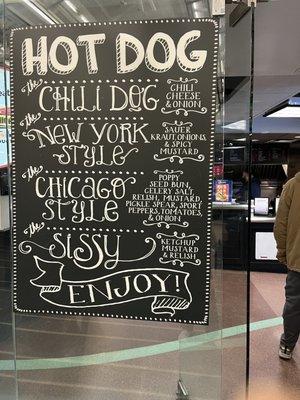 HOT DOG
the CHILI DOG
CHILI
CHEESE
& ONION
the NEW YORK
STYLE
SAUER
KRAUT, ONIONS
& SPICY
MUSTARD
the CHICAGO
STYLE
POPPY
SEED BUN,
CELERY SALT,
RELISH, MUSTARD,
PICKLE SPEAR, SPORT
PEPPERS, TOMATOES,
& ONION
the SISSY
KETCHUP
MUSTARD
& RELISH
ENJOY!